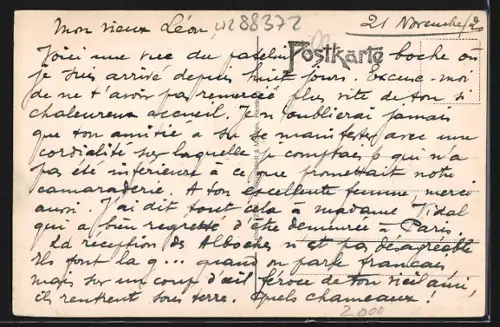 Mon vieux Léon 288372 21 Novembre/20
Postkarte
Voici une vue du patelin boche où
je suis arrivé depuis huit jours. Excuse-moi
de ne t'avoir pas remercié plus vite de ton si
chaleureux accueil. Je n'oublierai jamais
que ton amitié a su se manifester avec une
cordialité sur laquelle je comptais & qui n'a
pas été inférieure à ce que promettait notre
camaraderie. A ton excellente femme, merci
aussi. J'ai dit tout cela à madame Vidal
qui a bien regretté d'être demeurée à Paris.
La réception des Alboches n'est pas désagréable
Ils font la g... quand on parle français
mais sur un coup d'œil féroce de ton vieil ami,
ils rentrent sous terre. Quels chameaux !
2000